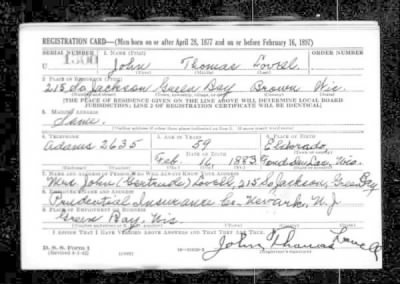 REGISTRATION CARD—(Men born on or after April 28, 1877 and on or before February 16, 1897)
SERIAL NUMBER 1. NAME (Print) ORDER NUMBER
U 1300 John Thomas Lovell
(First) (Middle) (Last)
2. PLACE OF RESIDENCE (Print)
215 So Jackson Green Bay Brown Wis.
[THE PLACE OF RESIDENCE GIVEN ON THE LINE ABOVE WILL DETERMINE LOCAL BOARD
JURISDICTION; LINE 2 OF REGISTRATION CERTIFICATE WILL BE IDENTICAL]
3. MAILING ADDRESS
Same
4. TELEPHONE 5. AGE IN YEARS 6. PLACE OF BIRTH
Adams 2635 59 Eldorado,
DATE OF BIRTH
Feb. 16 1883 Fond du Lac, Wis.
7. NAME AND ADDRESS OF PERSON WHO WILL ALWAYS KNOW YOUR ADDRESS
Mrs John (Gertrude) Lovell, 215 So Jackson, Green Bay
Prudential Insurance Co. Newark, N. J.
9. PLACE OF EMPLOYMENT OR BUSINESS
Green Bay, Wis
I AFFIRM THAT I HAVE VERIFIED ABOVE ANSWERS AND THAT THEY ARE TRUE.
D. S. S. Form 1 John Thomas Lovell
(Revised 4-1-42) (over) (Registrant's signature)